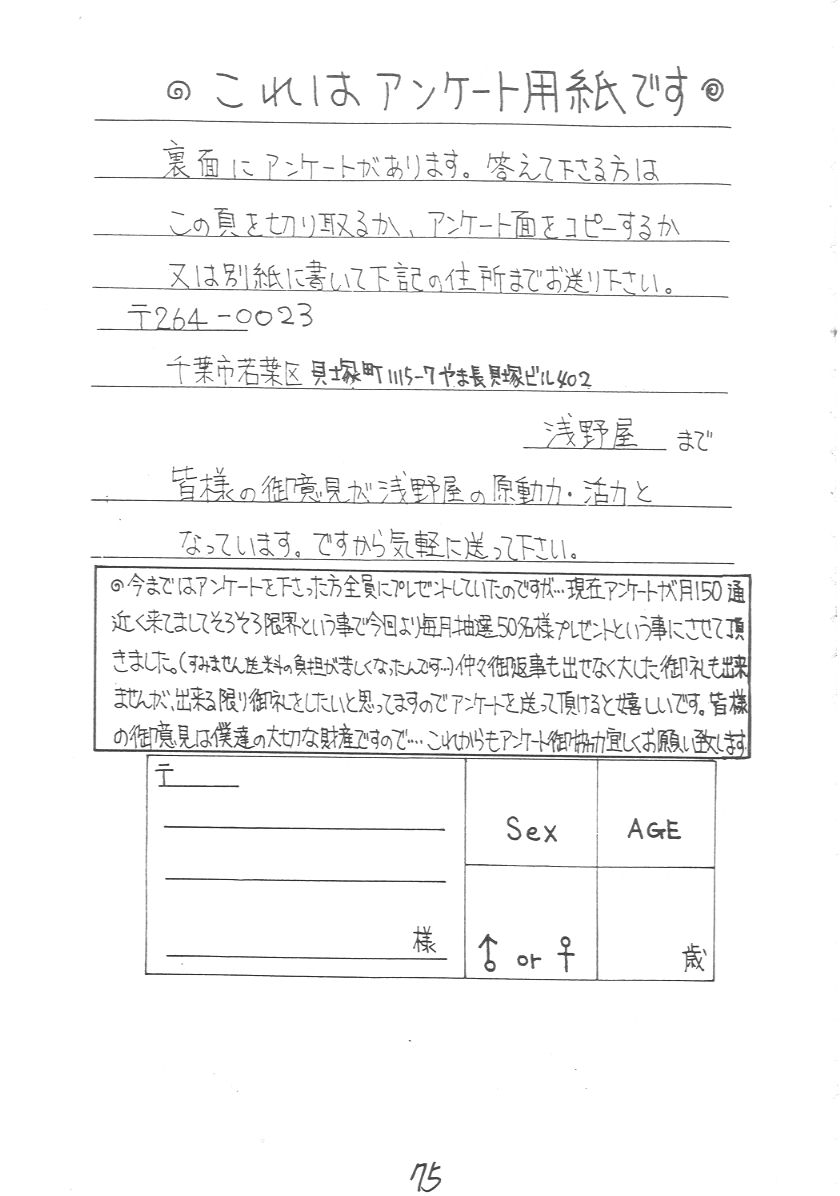 これはアンケート用紙です
裏面にアンケートがあります。答えて下さる方は
この頁を切り取るか、アンケート面をコピーするか
又は別紙に書いて下記の住所までお送り下さい。
〒264-0023
千葉市若葉区貝塚町1115-7やま長貝塚ビル402
浅野屋 まで
皆様の御意見が浅野屋の原動力・活力と
なっています。ですから気軽に送って下さい。
今まではアンケートを下さった方全員にプレゼントしていたのですが…現在アンケートが月150通
近く来てましてそろそろ限界という事で今回より毎月抽選50名様プレゼントという事にさせて頂
きました。(すみません送料の負担が苦しくなったんです…)仲々御返事も出せなく大した御礼も出来
ませんが、出来る限り御礼をしたいと思ってますのでアンケートを送って頂けると嬉しいです。皆様
の御意見は僕達の大切な財産ですので…これからもアンケート御協力宜しくお願い致します
〒
Sex AGE
様 ♂ or ♀ 歳
75